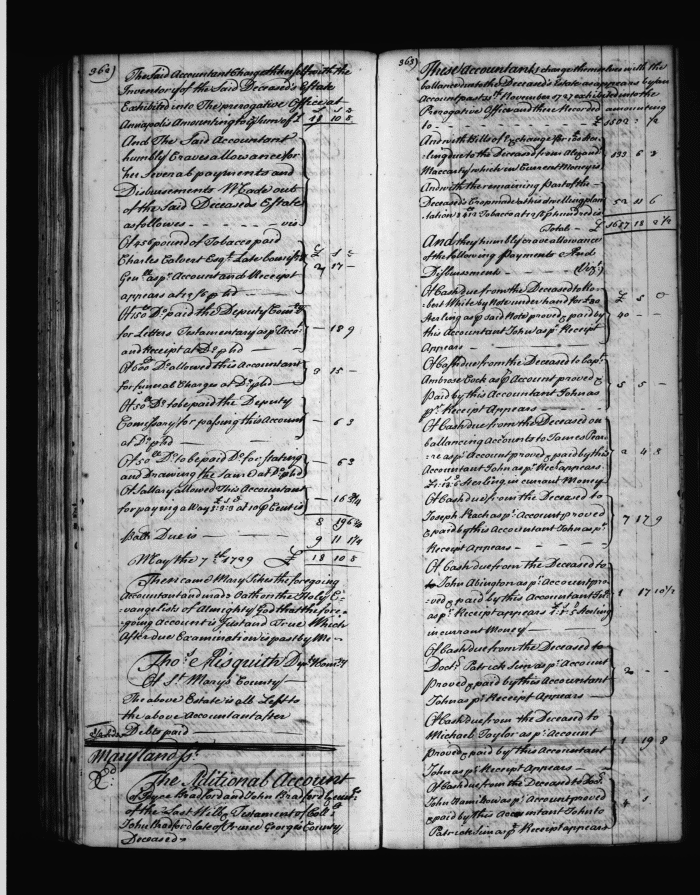 362)
The Said Accountant Chargeth herself with the
Inventory of the Said Deceased's Estate
Exhibited into The prerogative Office at
Annapolis Amounting to ye Sum of £ 18 10 8
And The Said Accountant
humbly Craves allowance for
her Several payments and
Disbursements Made out
of the Said Deceased's Estate
as follows - - - - - - viz
Of 456 pound of Tobacco paid
Charles Calvert Esqr. Late Comissy £ s d
Genll as pr Account and Receipt 2 17 -
appears at
Of 150 Do. paid the Deputy Comsy
for Letters Testamentary as pr Acco. - 18 9
and Receipt at Do. phd
Of 600 Do. allowed this Accountant
for funeral Charges at Do. phd 3 15 -
Of 50 Do. to be paid the Deputy
Comissary for passing this Account - 6 3
at Do. phd
Of 50 Do. to be paid Do. for Stating
and Drawing the Same at Do. phd - 6 3
Of Sallary allowed This Accountant
for paying away at 10 pr Cent is - 16
8
Balla. Due is 9 11 1/4
May the 7th 1729 £ 18 10 8
Then came Mary Sikes the foregoing
Accountant and made Oath on the Holy E-
vangelists of Almighty God that the fore-
-going Account is Just and True Which
After due Examination is past by Me -
Thos. Aisquith Dpty Comry
Of St. Mary's County
The above Estate is all Left to
the above Accountant after
Debts paid
Maryland ss.
The Aditional Account
of Joyce Bradford and John Bradford
of the Last Will & Testament of Coll.
John Bradford late of Prince Georges County
Deceased
363)
These Accountants charge themselves with the
ballance due to the Deceased's Estate as appears by an
Account past November 1727 exhibited into the
Prerogative Office and there Recorded amounting
to - - £ 1502
And with Bills of Exchange for Ster-
ling due to the Deceased from
Maccarty which in Current Money is 133 6 8
And with the remaining part of the
Deceased's Crop made at his dwelling plan
tation Tobacco at hundred is 52 11 6
Total £ 1687 18 2 1/2
And they humbly crave allowances
of the following Payments And
Disbursements (Vizt)
Of Cash due from the Deceased to Ro-
bert White by Note under hand for £30 £ s D
Sterling as pr said Note proved & paid by 40 - -
this Accountant John as pr Receipt
Appears
Of Cash due from the Deceased to Capt.
Ambrose Cock as pr Account proved & 5 5 -
Paid by this Accountant John as
pr Receipt Appears
Of Cash due from the Deceased on
ballancing Accounts to James Pear
as pr Account proved & paid by this 2 4 8
Accountant John as pr Rect appears
Sterling in currant Money
Of Cash due from the Deceased to
Joseph as pr Account proved 7 17 9
& paid by this Accountant John as pr
Receipt Appears
Of Cash due from the Deceased to
John Abington as pr Account pro-
-ved & paid by this Accountant 1 17 10 1/2
as pr Receipt appears Sterling
in currant Money
Of Cash due from the Deceased to
Doctr. Patrick Sim as pr Account
Proved & paid by this Accountant 2 - -
John as pr Receipt Appears
Of Cash due from the Deceased to
Michael Taylor as pr Account 1 19 8
proved & paid by this Accountant
John as pr Receipt Appears
Of Cash due from the Deceased to
John Hamilton as pr Account proved
& paid by this Accountant John to 4
Patrick Sim as pr Receipt appears